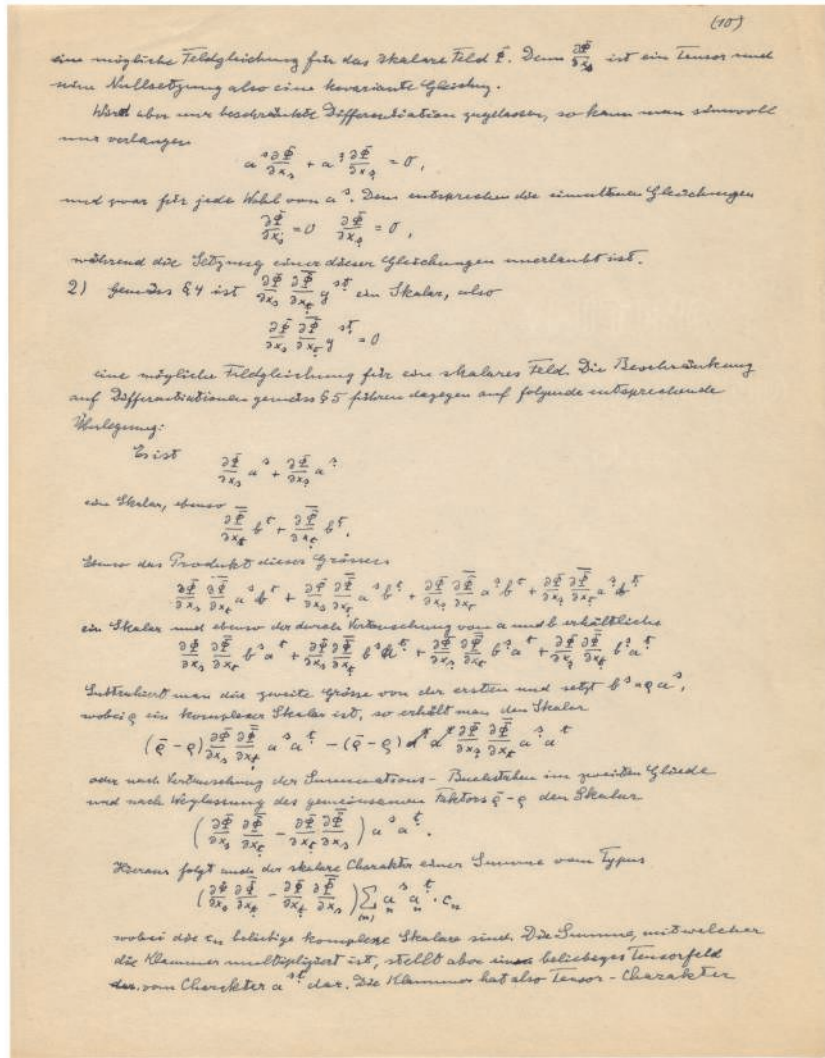 (10)
eine mögliche Feldgleichung für das skalare Feld Φ. Denn ∂Φ/∂x_s ist ein Tensor und
seine Nullsetzung also eine kovariante Gleichung.
Wird aber nur beschränkte Differentiation zugelassen, so kann man sinnvoll
nur verlangen
a^s ∂Φ/∂x_s + a^ṣ ∂Φ/∂x_ṣ = 0,
und zwar für jede Wahl von a^s. Dem entsprechen die simultanen Gleichungen
∂Φ/∂x_s = 0   ∂Φ/∂x_ṣ = 0,
während die Setzung einer dieser Gleichungen unerlaubt ist.
2) Gemäss §4 ist ∂Φ/∂x_s ∂Φ̄/∂x_ṭ g^sṭ ein Skalar, also
∂Φ/∂x_s ∂Φ̄/∂x_ṭ g^sṭ = 0
eine mögliche Feldgleichung für ein skalares Feld. Die Beschränkung
auf Differentiationen gemäss §5 führen dagegen auf folgende entsprechende
Überlegung:
Es ist ∂Φ/∂x_s a^s + ∂Φ/∂x_ṣ a^ṣ
ein Skalar, ebenso
∂Φ̄/∂x_t b^t + ∂Φ̄/∂x_ṭ b^ṭ.
Ebenso das Produkt dieser Grössen
∂Φ/∂x_s ∂Φ̄/∂x_t a^s b^t + ∂Φ/∂x_s ∂Φ̄/∂x_ṭ a^s b^ṭ + ∂Φ/∂x_ṣ ∂Φ̄/∂x_t a^ṣ b^t + ∂Φ/∂x_ṣ ∂Φ̄/∂x_ṭ a^ṣ b^ṭ
ein Skalar und ebenso der durch Vertauschung von a und b erhältliche
∂Φ/∂x_s ∂Φ̄/∂x_t b^s a^t + ∂Φ/∂x_s ∂Φ̄/∂x_ṭ b^s a^ṭ + ∂Φ/∂x_ṣ ∂Φ̄/∂x_t b^ṣ a^t + ∂Φ/∂x_ṣ ∂Φ̄/∂x_ṭ b^ṣ a^ṭ
Subtrahiert man die zweite Grösse von der ersten und setzt b^s = ϱ a^s,
wobei ϱ ein komplexer Skalar ist, so erhält man den Skalar
(ϱ̄ - ϱ) ∂Φ/∂x_s ∂Φ̄/∂x_ṭ a^s a^ṭ - (ϱ̄ - ϱ) ∂Φ/∂x_ṣ ∂Φ̄/∂x_t a^ṣ a^t
oder nach Vertauschung der Summations-Buchstaben im zweiten Gliede
und nach Weglassung des gemeinsamen Faktors ϱ̄ - ϱ den Skalar
(∂Φ/∂x_s ∂Φ̄/∂x_ṭ - ∂Φ/∂x_ṭ ∂Φ̄/∂x_s) a^s a^ṭ.
Hieraus folgt auch der skalare Charakter einer Summe vom Typus
(∂Φ/∂x_s ∂Φ̄/∂x_ṭ - ∂Φ/∂x_ṭ ∂Φ̄/∂x_s) ∑_(n) a_n^s a_n^ṭ · c_n
wobei die c_n beliebige komplexe Skalare sind. Die Summe, mit welcher
die Klammer multipliziert ist, stellt aber beliebiges Tensorfeld
vom Charakter a^sṭ dar. Die Klammer hat also Tensor-Charakter